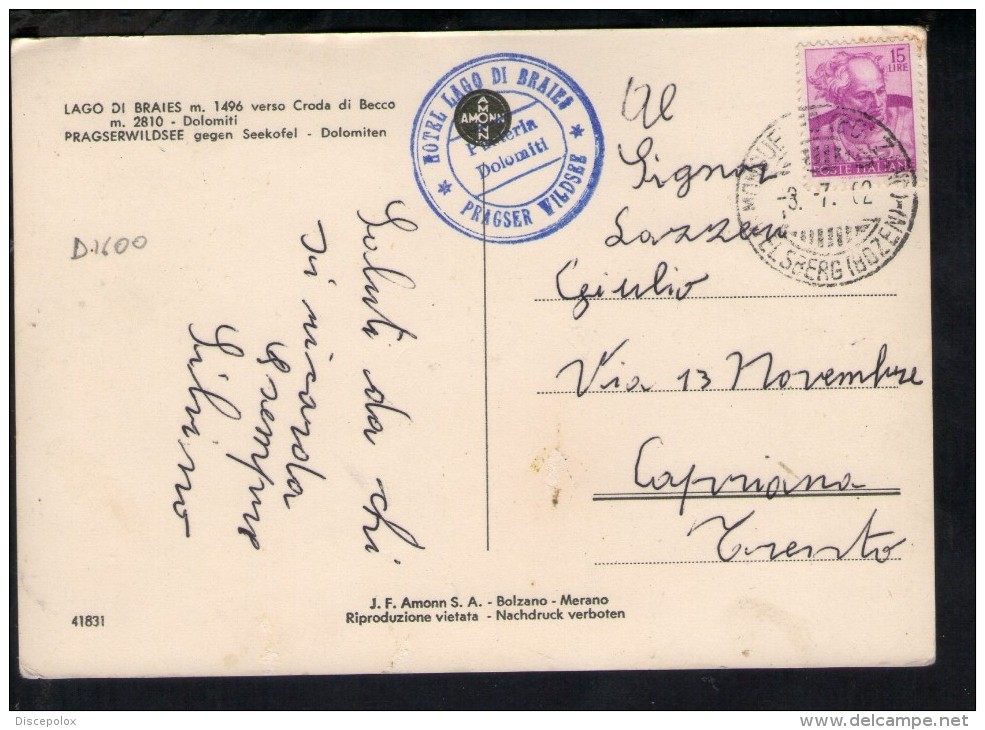 LAGO DI BRAIES m. 1496 verso Croda di Becco
m. 2810 - Dolomiti
PRAGSERWILDSEE gegen Seekofel - Dolomiten
D.1600
HOTEL LAGO DI BRAIES
Dolomiti
* PRAGSER WILDSEE *
AMONN
AMONN
15
LIRE
POSTE ITALIANE
ELSBERG (BOZEN)
Al
Signor
Giulio
Via 13 Novembre
Capriana
Trento
Saluti da chi
Vi ricorda
sempre
Silvino
J. F. Amonn S. A. - Bolzano - Merano
Riproduzione vietata - Nachdruck verboten
41831
Discepolox
www.delcampe.net